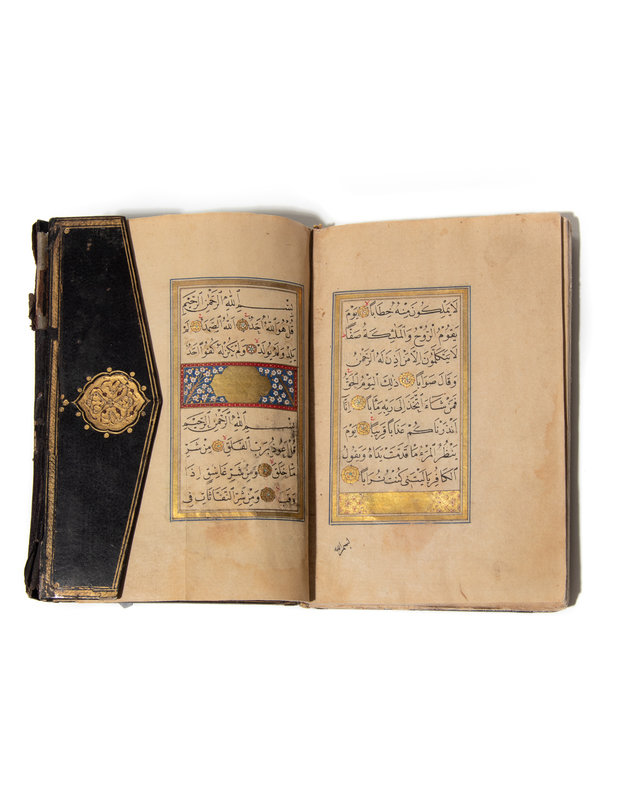 لَا يَمْلِكُونَ مِنْهُ خِطَابًا يَوْمَ
يَقُومُ الرُّوحُ وَالْمَلٰئِكَةُ صَفًّا
لَا يَتَكَلَّمُونَ اِلَّا مَنْ اَذِنَ لَهُ الرَّحْمٰنُ
وَقَالَ صَوَابًا ذٰلِكَ الْيَوْمُ الْحَقُّ
فَمَنْ شَاءَ اتَّخَذَ اِلٰى رَبِّهِ مَاٰبًا اِنَّا
اَنْذَرْنَاكُمْ عَذَابًا قَرِيبًا يَوْمَ
يَنْظُرُ الْمَرْءُ مَا قَدَّمَتْ يَدَاهُ وَيَقُولُ
الْكَافِرُ يَالَيْتَنِى كُنْتُ تُرَابًا
بسم الله
بِسْمِ اللّٰهِ الرَّحْمٰنِ الرَّحِيمِ
قُلْ هُوَ اللّٰهُ اَحَدٌ اَللّٰهُ الصَّمَدُ لَمْ
يَلِدْ وَلَمْ يُولَدْ وَلَمْ يَكُنْ لَهُ كُفُوًا اَحَدٌ
بِسْمِ اللّٰهِ الرَّحْمٰنِ الرَّحِيمِ
قُلْ اَعُوذُ بِرَبِّ الْفَلَقِ مِنْ شَرِّ
مَا خَلَقَ وَمِنْ شَرِّ غَاسِقٍ اِذَا
وَقَبَ وَمِنْ شَرِّ النَّفَّاثَاتِ فِى